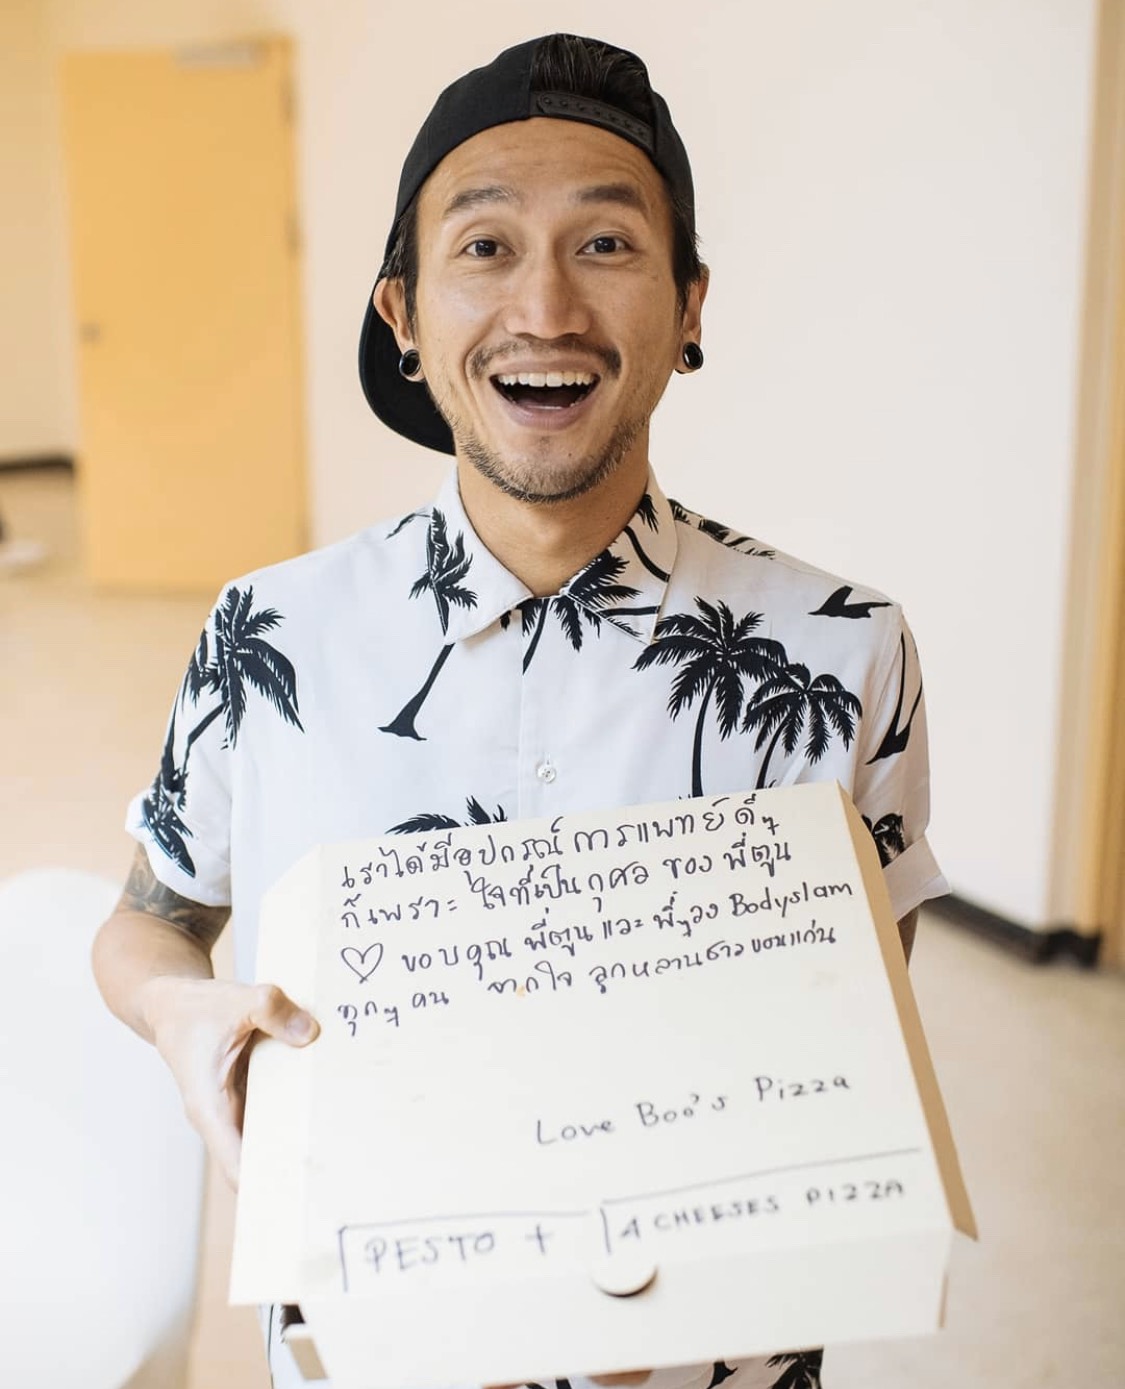 เราได้มีอุปกรณ์การแพทย์ดีๆ
ก็เพราะใจที่เป็นกุศลของพี่ตูน
♡ ขอบคุณพี่ตูนและพี่ๆวง Bodyslam
ทุกๆคน จากใจ ลูกหลานชาวขอนแก่น
Love Boo's Pizza
PESTO + 4 CHEESES PIZZA